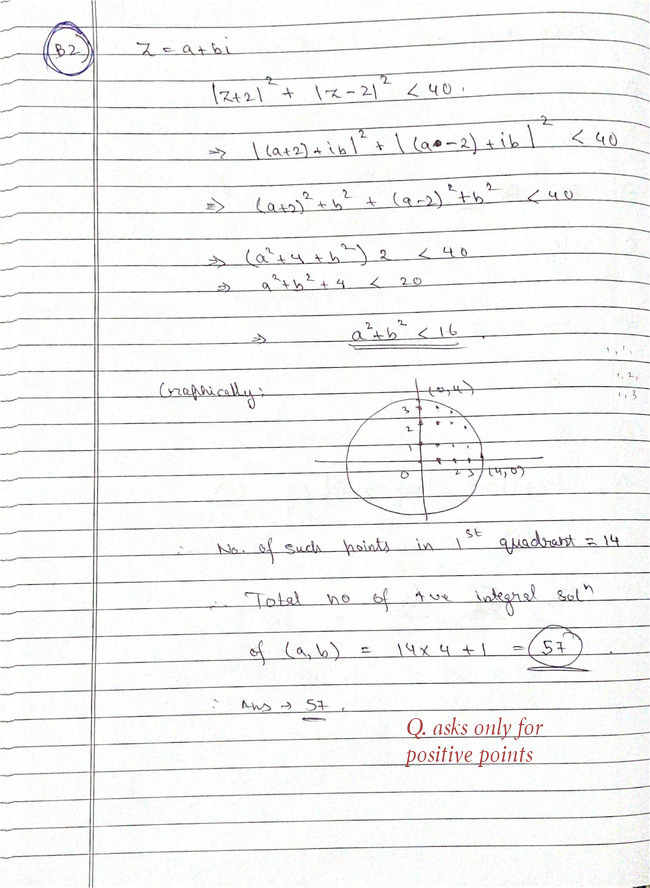 B2
z = a+bi
|z+2|² + |z-2|² < 40.
⇒ |(a+2)+ib|² + |(a-2)+ib|² < 40
⇒ (a+2)²+b² + (a-2)²+b² < 40
⇒ (a²+4+b²) 2 < 40
⇒ a²+b²+4 < 20
⇒ a²+b² < 16.
1,1,
1,2,
1,3
Graphically:
(0,4)
3
2
1
0 2 3 (4,0)
∴ No. of such points in 1st quadrant = 14
∴ Total no of +ve integral solⁿ
of (a,b) = 14×4+1 = 57.
∴ Ans → 57.
Q. asks only for
positive points